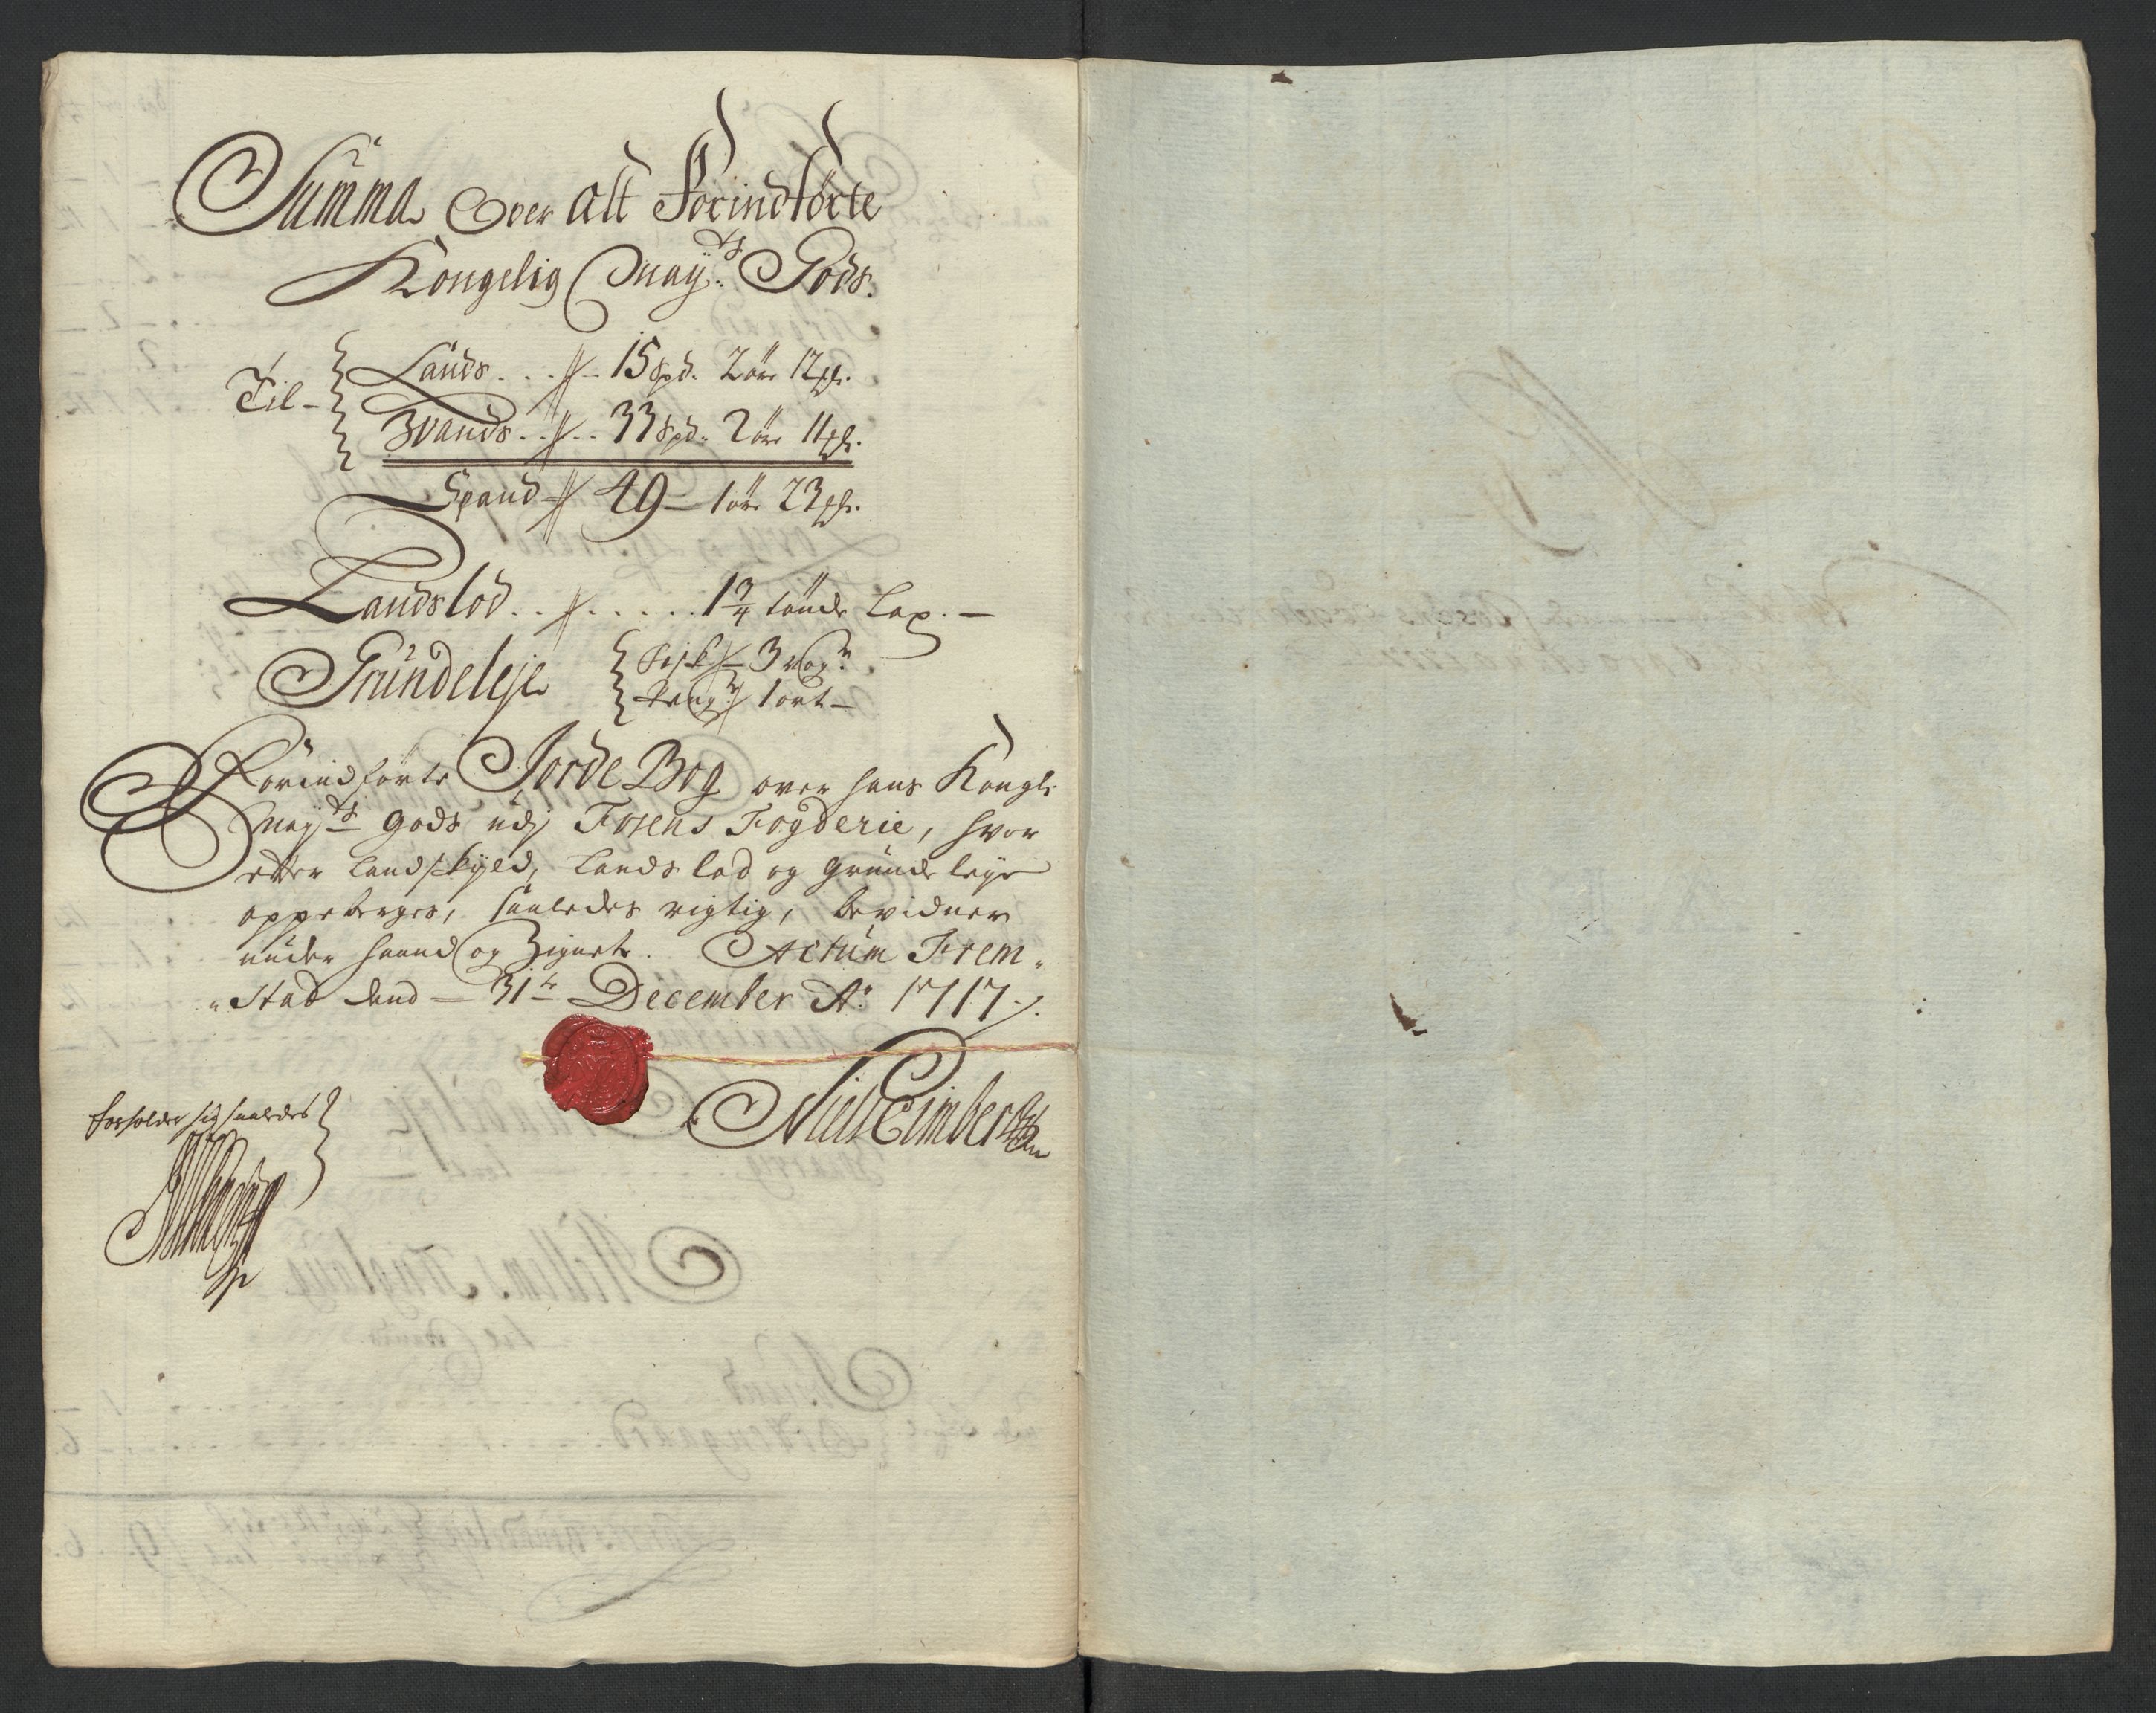 Summa Over alt Forindførte
Kongelig May:ts Gods.
Til - Lands . . . 15 spd. 2 øre 12 pf.
Zvands . . . 33 spd. 2 øre 11 pf.
Spand 49 - 1 øre 23 pf.
Landslod . . . . . . . 1 3/4 tønde lax. -
Grûndeleje Fisk 3 Wog:r
Peng:r 1 ort -
Forindførte Jorde Bog over hans Kongl:
May:ts Gods udj Fosens Fogderie, hvor
efter landskyld, lands lod og Grûnde leye
oppeberges, saaledes rigtig, bevidner
under haand og Zignete. Actûm Frem„
„stad dend - 31te December A:o 1717
forholder sig saaledes
Niels Eimber